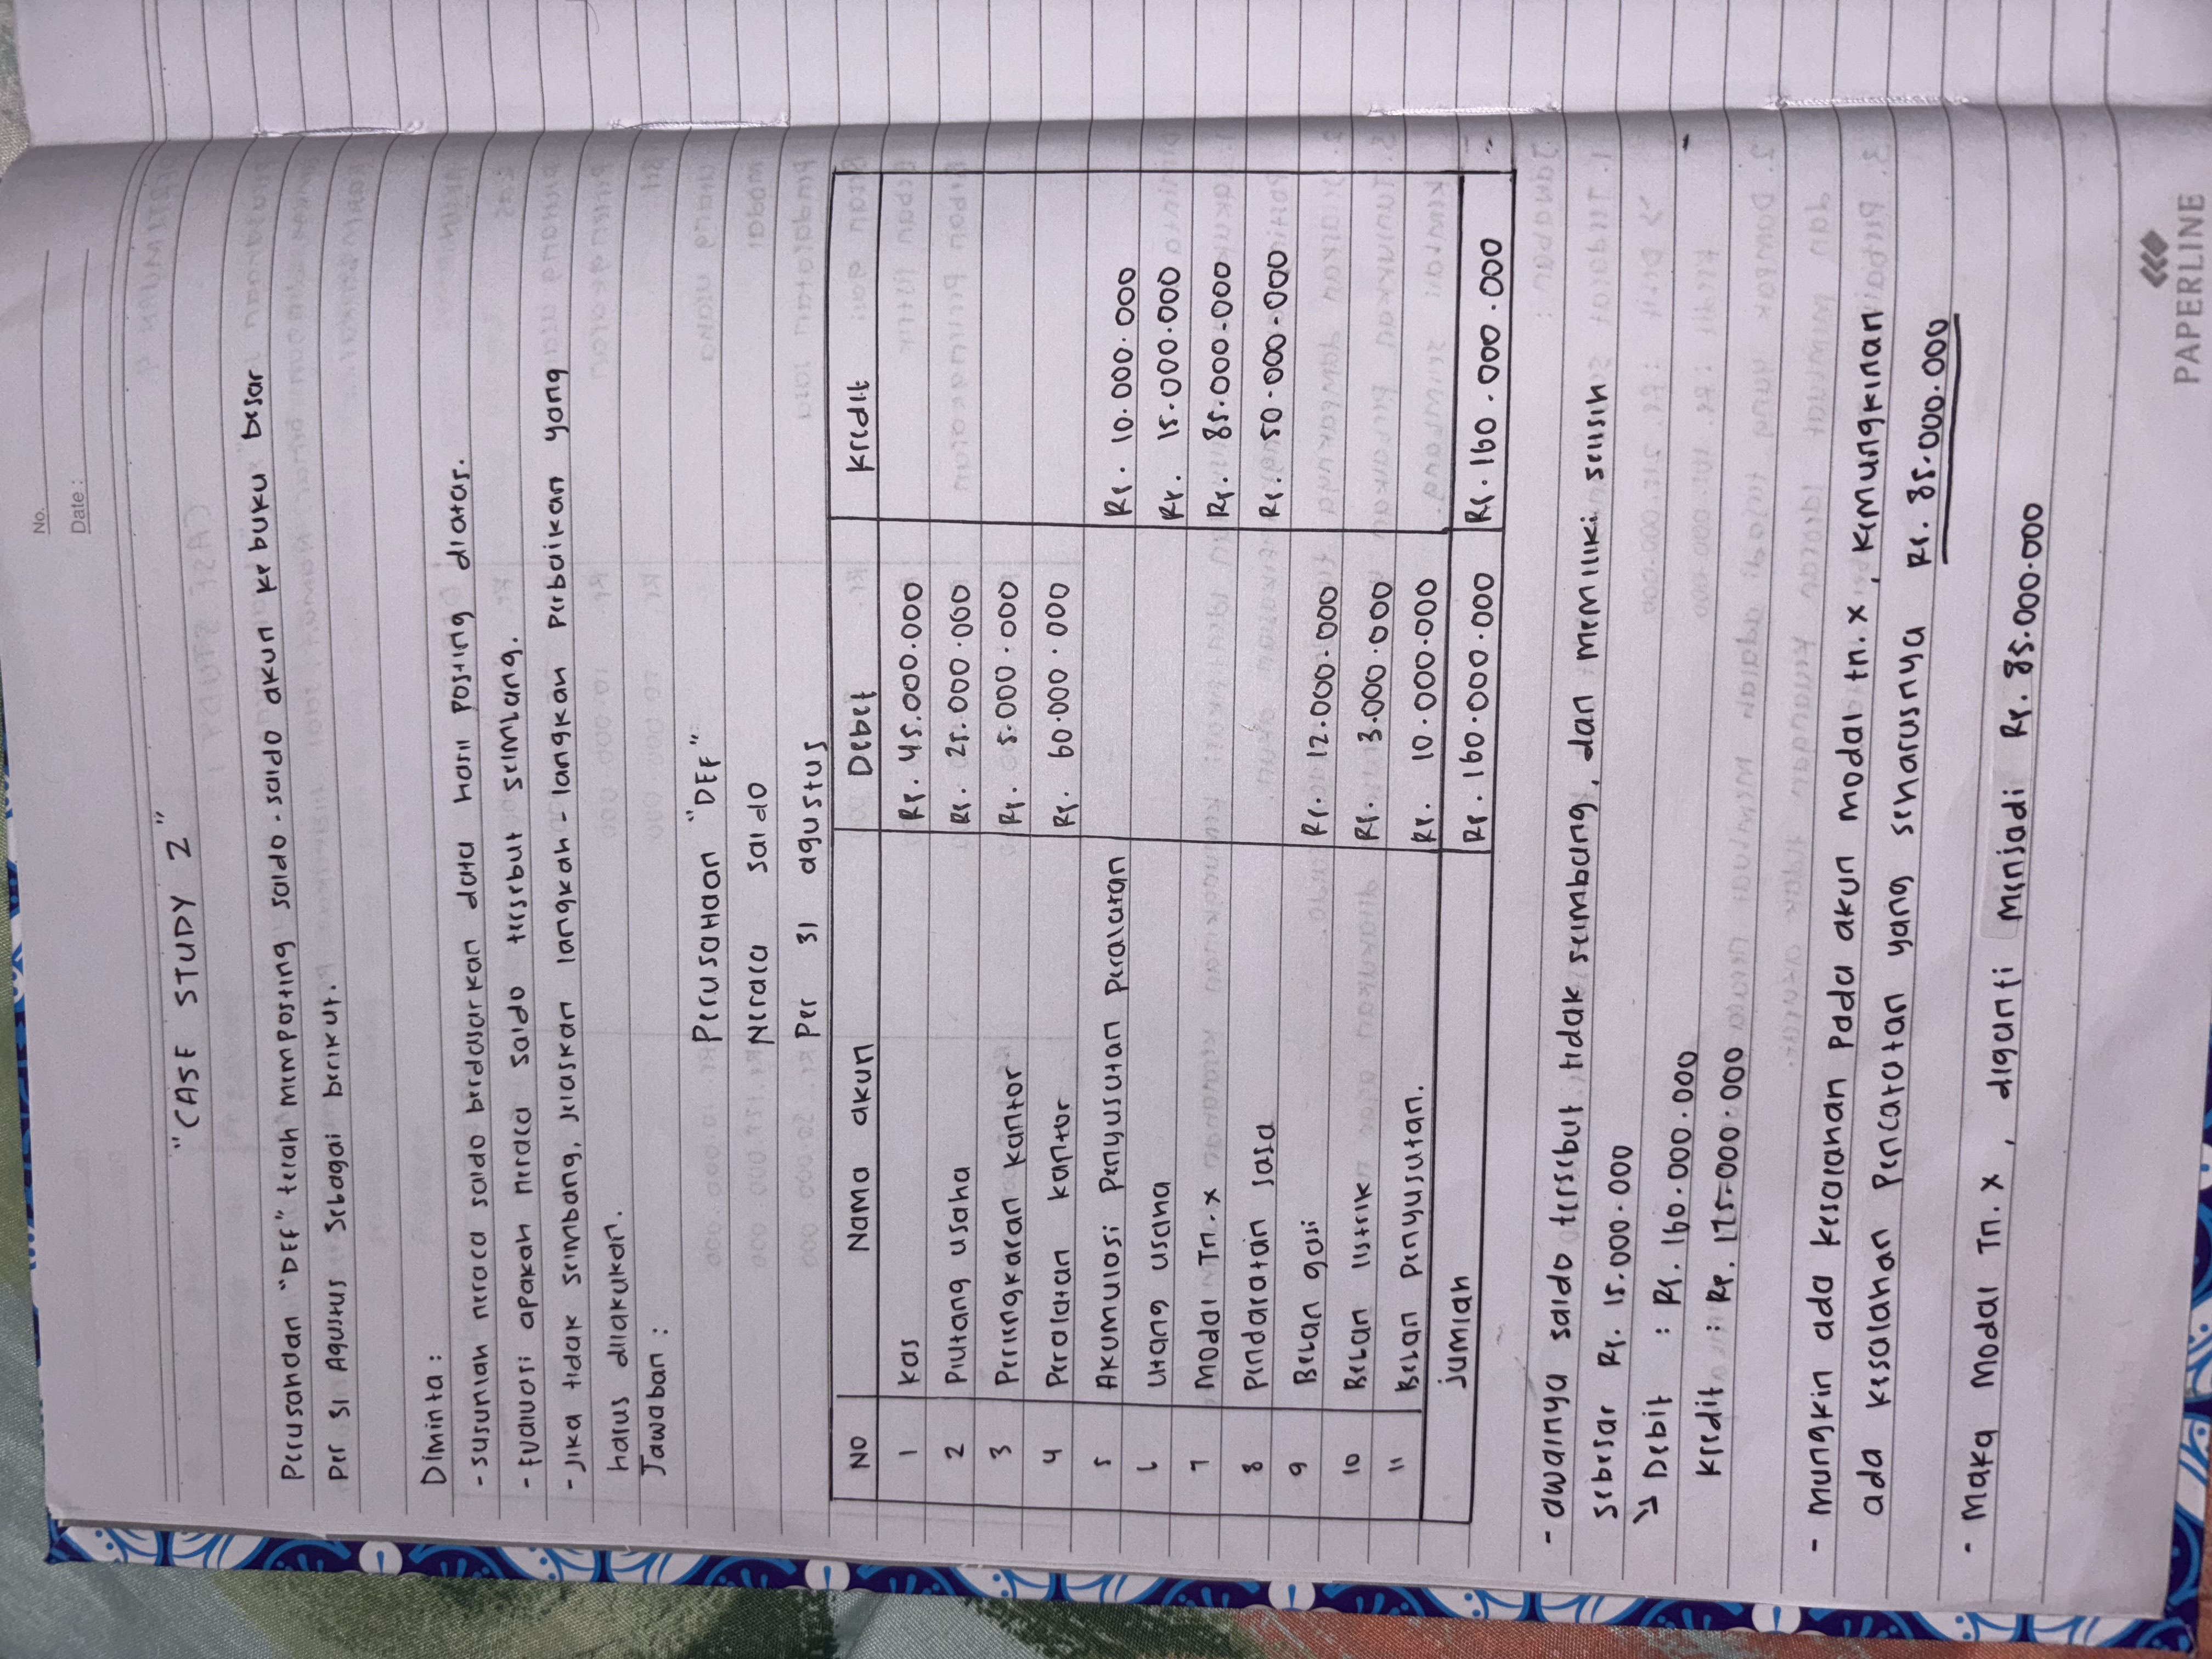 No.
Date :
"CASE STUDY 2"
Perusahaan "DEF" telah memposting saldo - saldo akun ke buku besar
Per 31 Agustus sebagai berikut.
Diminta :
- susunlah neraca saldo berdasarkan data hasil posting diatas.
- Evaluasi apakah neraca saldo tersebut seimbang.
- Jika tidak seimbang, jelaskan langkah - langkah perbaikan yang
harus dilakukan.
Jawaban :
Perusahaan "DEF"
Neraca saldo
Per 31 agustus
NO Nama akun Debet Kredit
1 Kas Rp. 45.000.000
2 Piutang usaha Rp. 25.000.000
3 Perlengkapan kantor Rp. 5.000.000
4 Peralatan kantor Rp. 60.000.000
5 Akumulasi penyusutan peralatan Rp. 10.000.000
6 Utang usaha Rp. 15.000.000
7 Modal Tn. X Rp. 85.000.000
8 Pendapatan jasa Rp. 50.000.000
9 Beban gaji Rp. 12.000.000
10 Beban listrik Rp. 3.000.000
11 Beban penyusutan. Rp. 10.000.000
Jumlah Rp. 160.000.000 Rp. 160.000.000
- awalnya saldo tersebut tidak seimbang, dan memiliki selisih
sebesar Rp. 15.000.000
↳ Debit : Rp. 160.000.000
Kredit : Rp. 175.000.000
- mungkin ada kesalahan pada akun modal tn. X, kemungkinan
ada kesalahan pencatatan yang seharusnya Rp. 85.000.000
- Maka Modal Tn. X, diganti menjadi Rp. 85.000.000
PAPERLINE